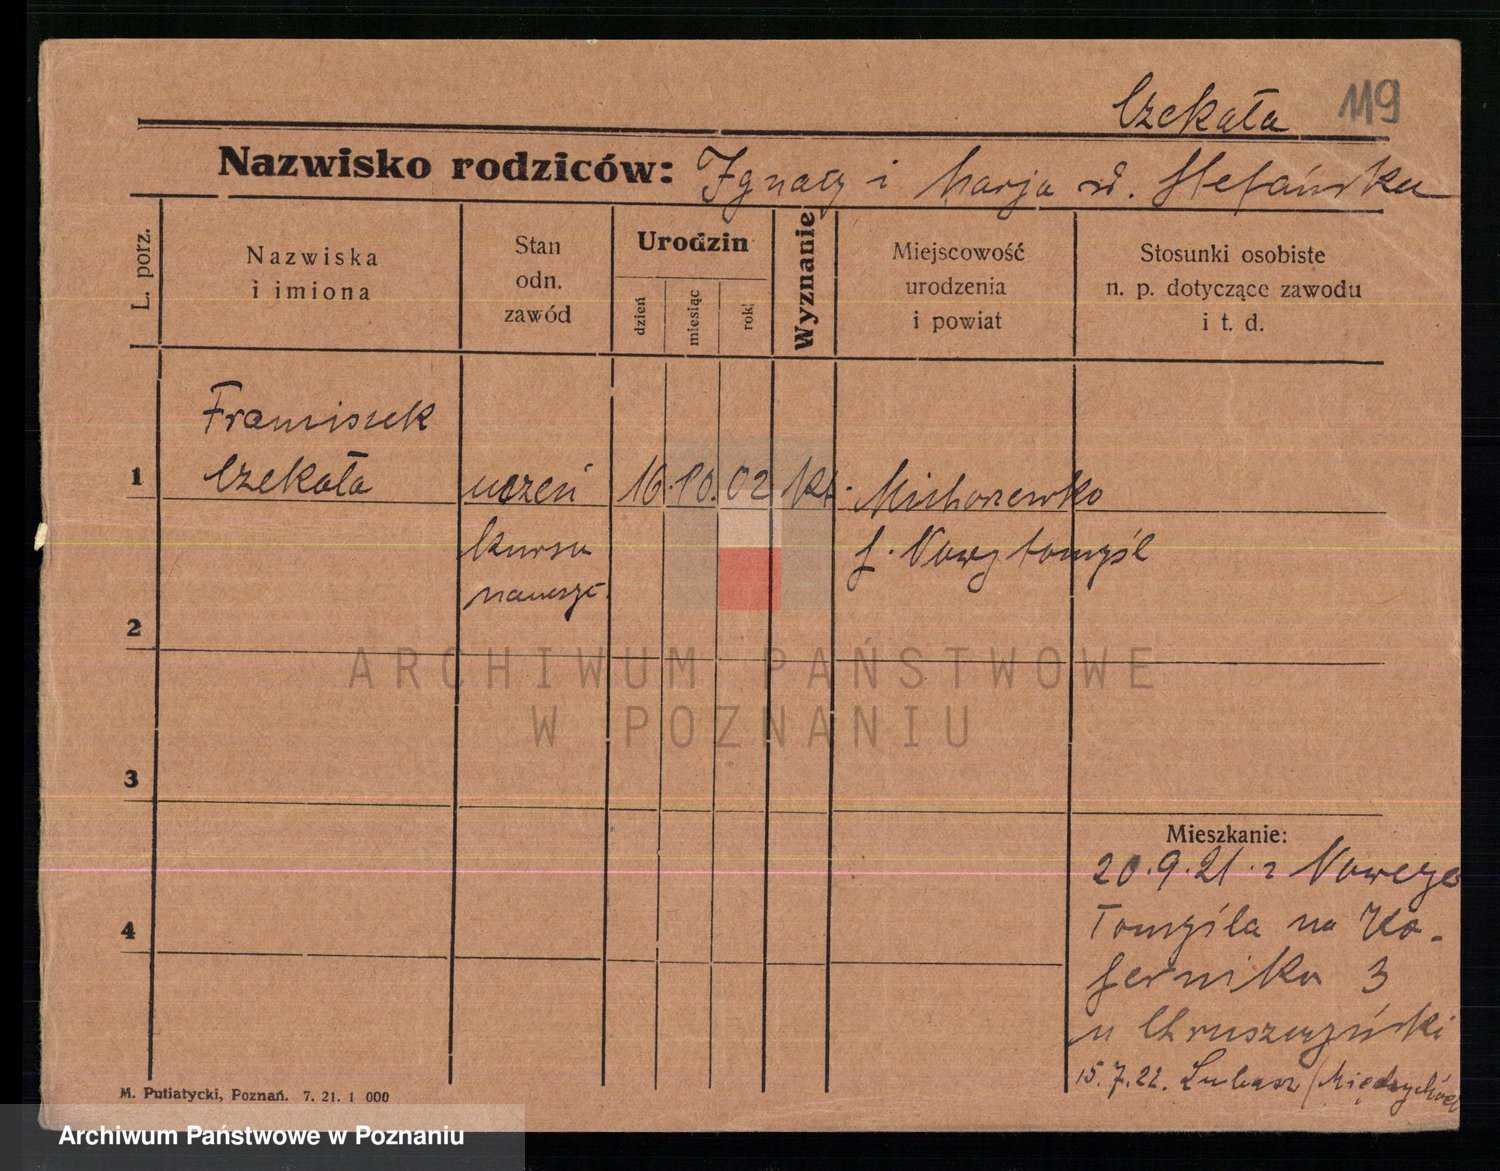 Czekała 119
Nazwisko rodziców: Ignacy i Marja ur. Stefańska
L. porz.
Nazwiska
i imiona
Stan
odn.
zawód
Urodzin
dzień
miesiąc
rok
Wyznanie
Miejscowość
urodzenia
i powiat
Stosunki osobiste
n. p. dotyczące zawodu
i t. d.
Franciszek
1 Czekała uczeń 16. 10. 02 kt. Michorzewko
kursu p. Nowy tomyśl
naucz.
2
ARCHIWUM PAŃSTWOWE
W POZNANIU
3
Mieszkanie:
20.9.21. z Nowego
4 Tomyśla na Ko-
pernika 3
u Chruszczyński
15.7.22. Lubasz / Międzychód
M. Putiatycki, Poznań. 7. 21. 1 000
Archiwum Państwowe w Poznaniu